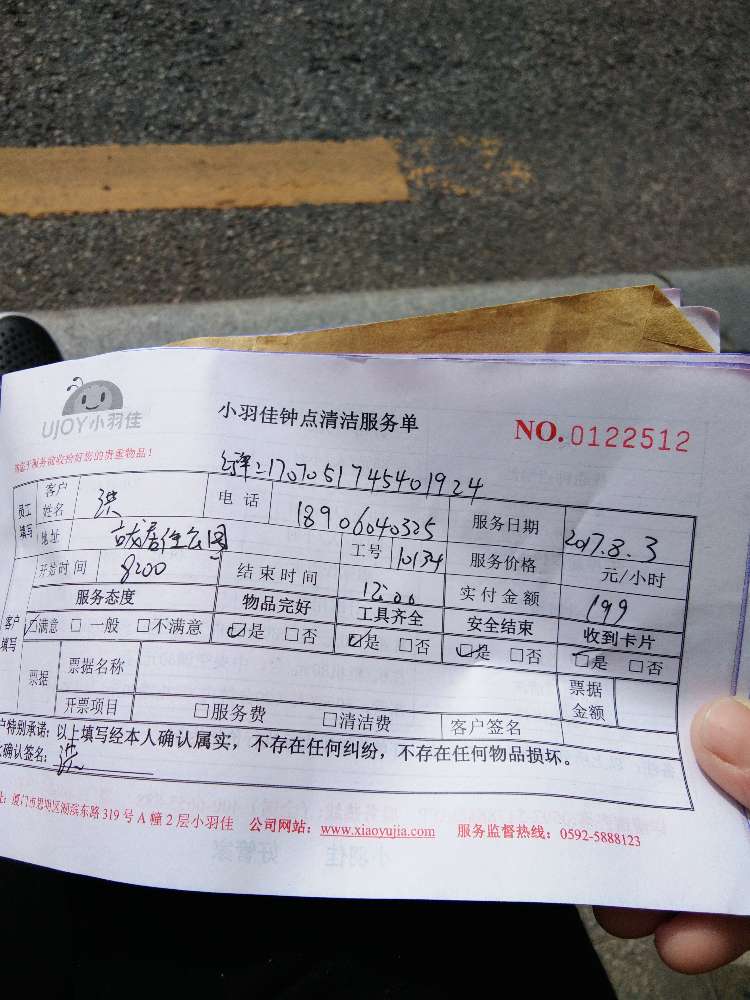 UJOY小羽佳
小羽佳钟点清洁服务单
NO.0122512
服务前收拾好您的贵重物品!
1707051745401924
员工填写 客户姓名 洪 电话 18906040325 服务日期 2017.8.3
地址 居住公园 工号 10134 服务价格 元/小时
开始时间 8200 结束时间 12:00 实付金额 199
客户填写 服务态度 物品完好 工具齐全 安全结束 收到卡片
☑满意 □一般 □不满意 ☑是 □否 ☑是 □否 ☑是 □否 ☑是 □否
票据 票据名称 票据金额
开票项目 □服务费 □清洁费 客户签名
户特别承诺:以上填写经本人确认属实,不存在任何纠纷,不存在任何物品损坏。
确认签名: 洪
址:厦门市思明区湖滨东路319号A幢2层小羽佳 公司网站:www.xiaoyujia.com 服务监督热线:0592-5888123